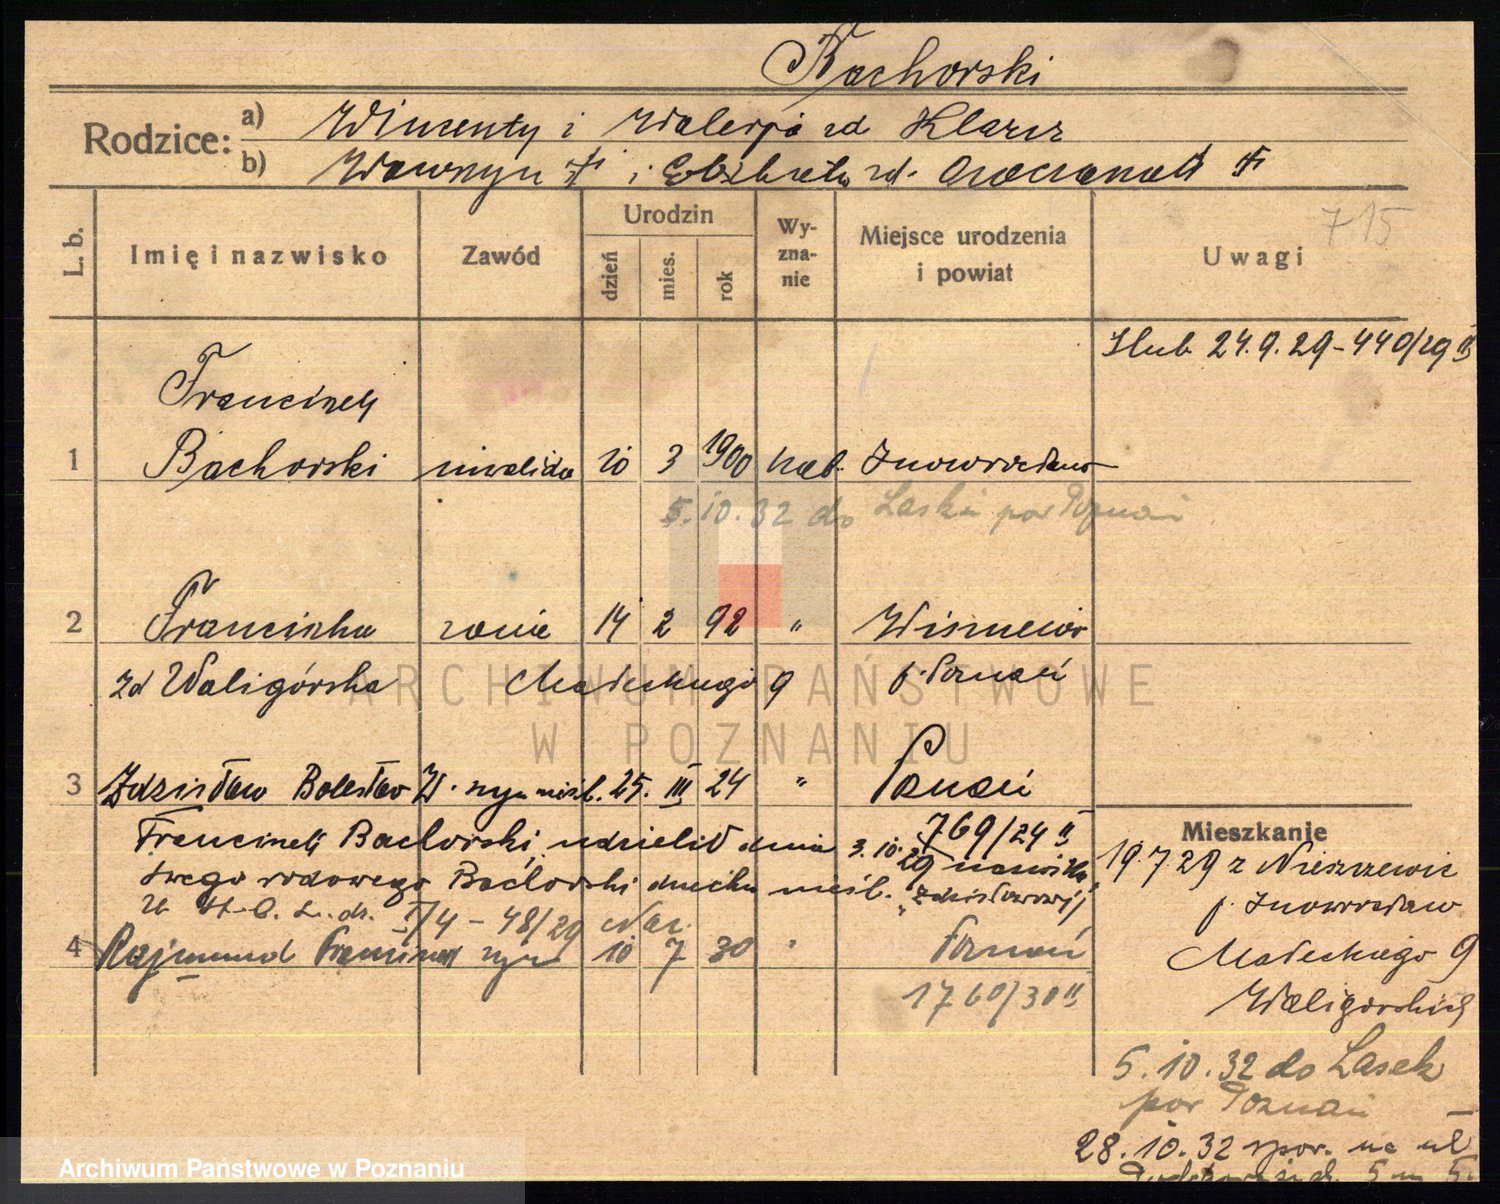 Bachorski
Rodzice: a) Wincenty i Walerja zd Klarzr
b) Wawrzyn † i Elżbieta zd. †
L. b. Imię i nazwisko Zawód Urodzin dzień mies. rok Wyznanie Miejsce urodzenia i powiat Uwagi 715
Ślub 24.9.29 - 440/29 II
1 Franciszek Bachorski inwalida 20 3 1900 kat. Inowrocław
5.10.32 do Laski pow Poznań
2 Franciszka żona 14 2 92 " Wiśniewo
zd Waligórska Małeckiego 9 p. Poznań
ARCHIWUM PAŃSTWOWE
W POZNANIU
3 Zdzisław Bolesław W. syn nieśl. 25. III 24 " Poznań
769/24 II
Franciszek Bachorski udzielił dnia 3.10.29 nazwiska
swego rodowego Bachorski dziecku nieśl. "Zdzisławowi"
U. S. C. L. dz. I/4 - 48/29 Nar.
4 Rajmund Franciszek syn 10 7 30 " Poznań
1760/30 II
Mieszkanie
19.7.29 z Nieszczewic
p. Inowrocław
Małeckiego 9
Waligórskich
5.10.32 do Lasek
pow Poznań
28.10.32 spow. na ul
5 m 5
Archiwum Państwowe w Poznaniu